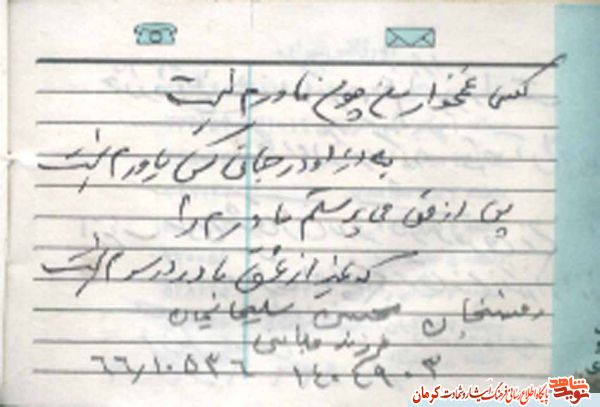 کسی غمخوار من چون مادرم نیست
به از او در جهانی کس یاورم نیست
پس از حق می پرستم مادرم را
که غیر از عشق مادر در سرم نیست
رفسنجان حسن سلیمانیان
فرزند عباس
۱۴۰۳۹۰۳ ۶۶/۱۰۵۳۶
نوید شاهد
پایگاه اطلاع رسانی فرهنگ ایثار و شهادت کرمان